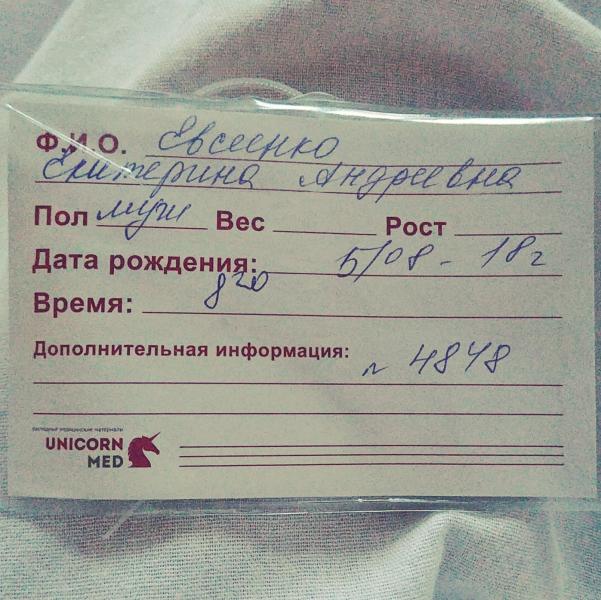 Ф.И.О. Евсеенко
Екатерина Андреевна
Пол муж Вес Рост
Дата рождения: 5/08-18г
Время: 8 20
Дополнительная информация:
№ 4848
расходные медицинские материалы
UNICORN
MED